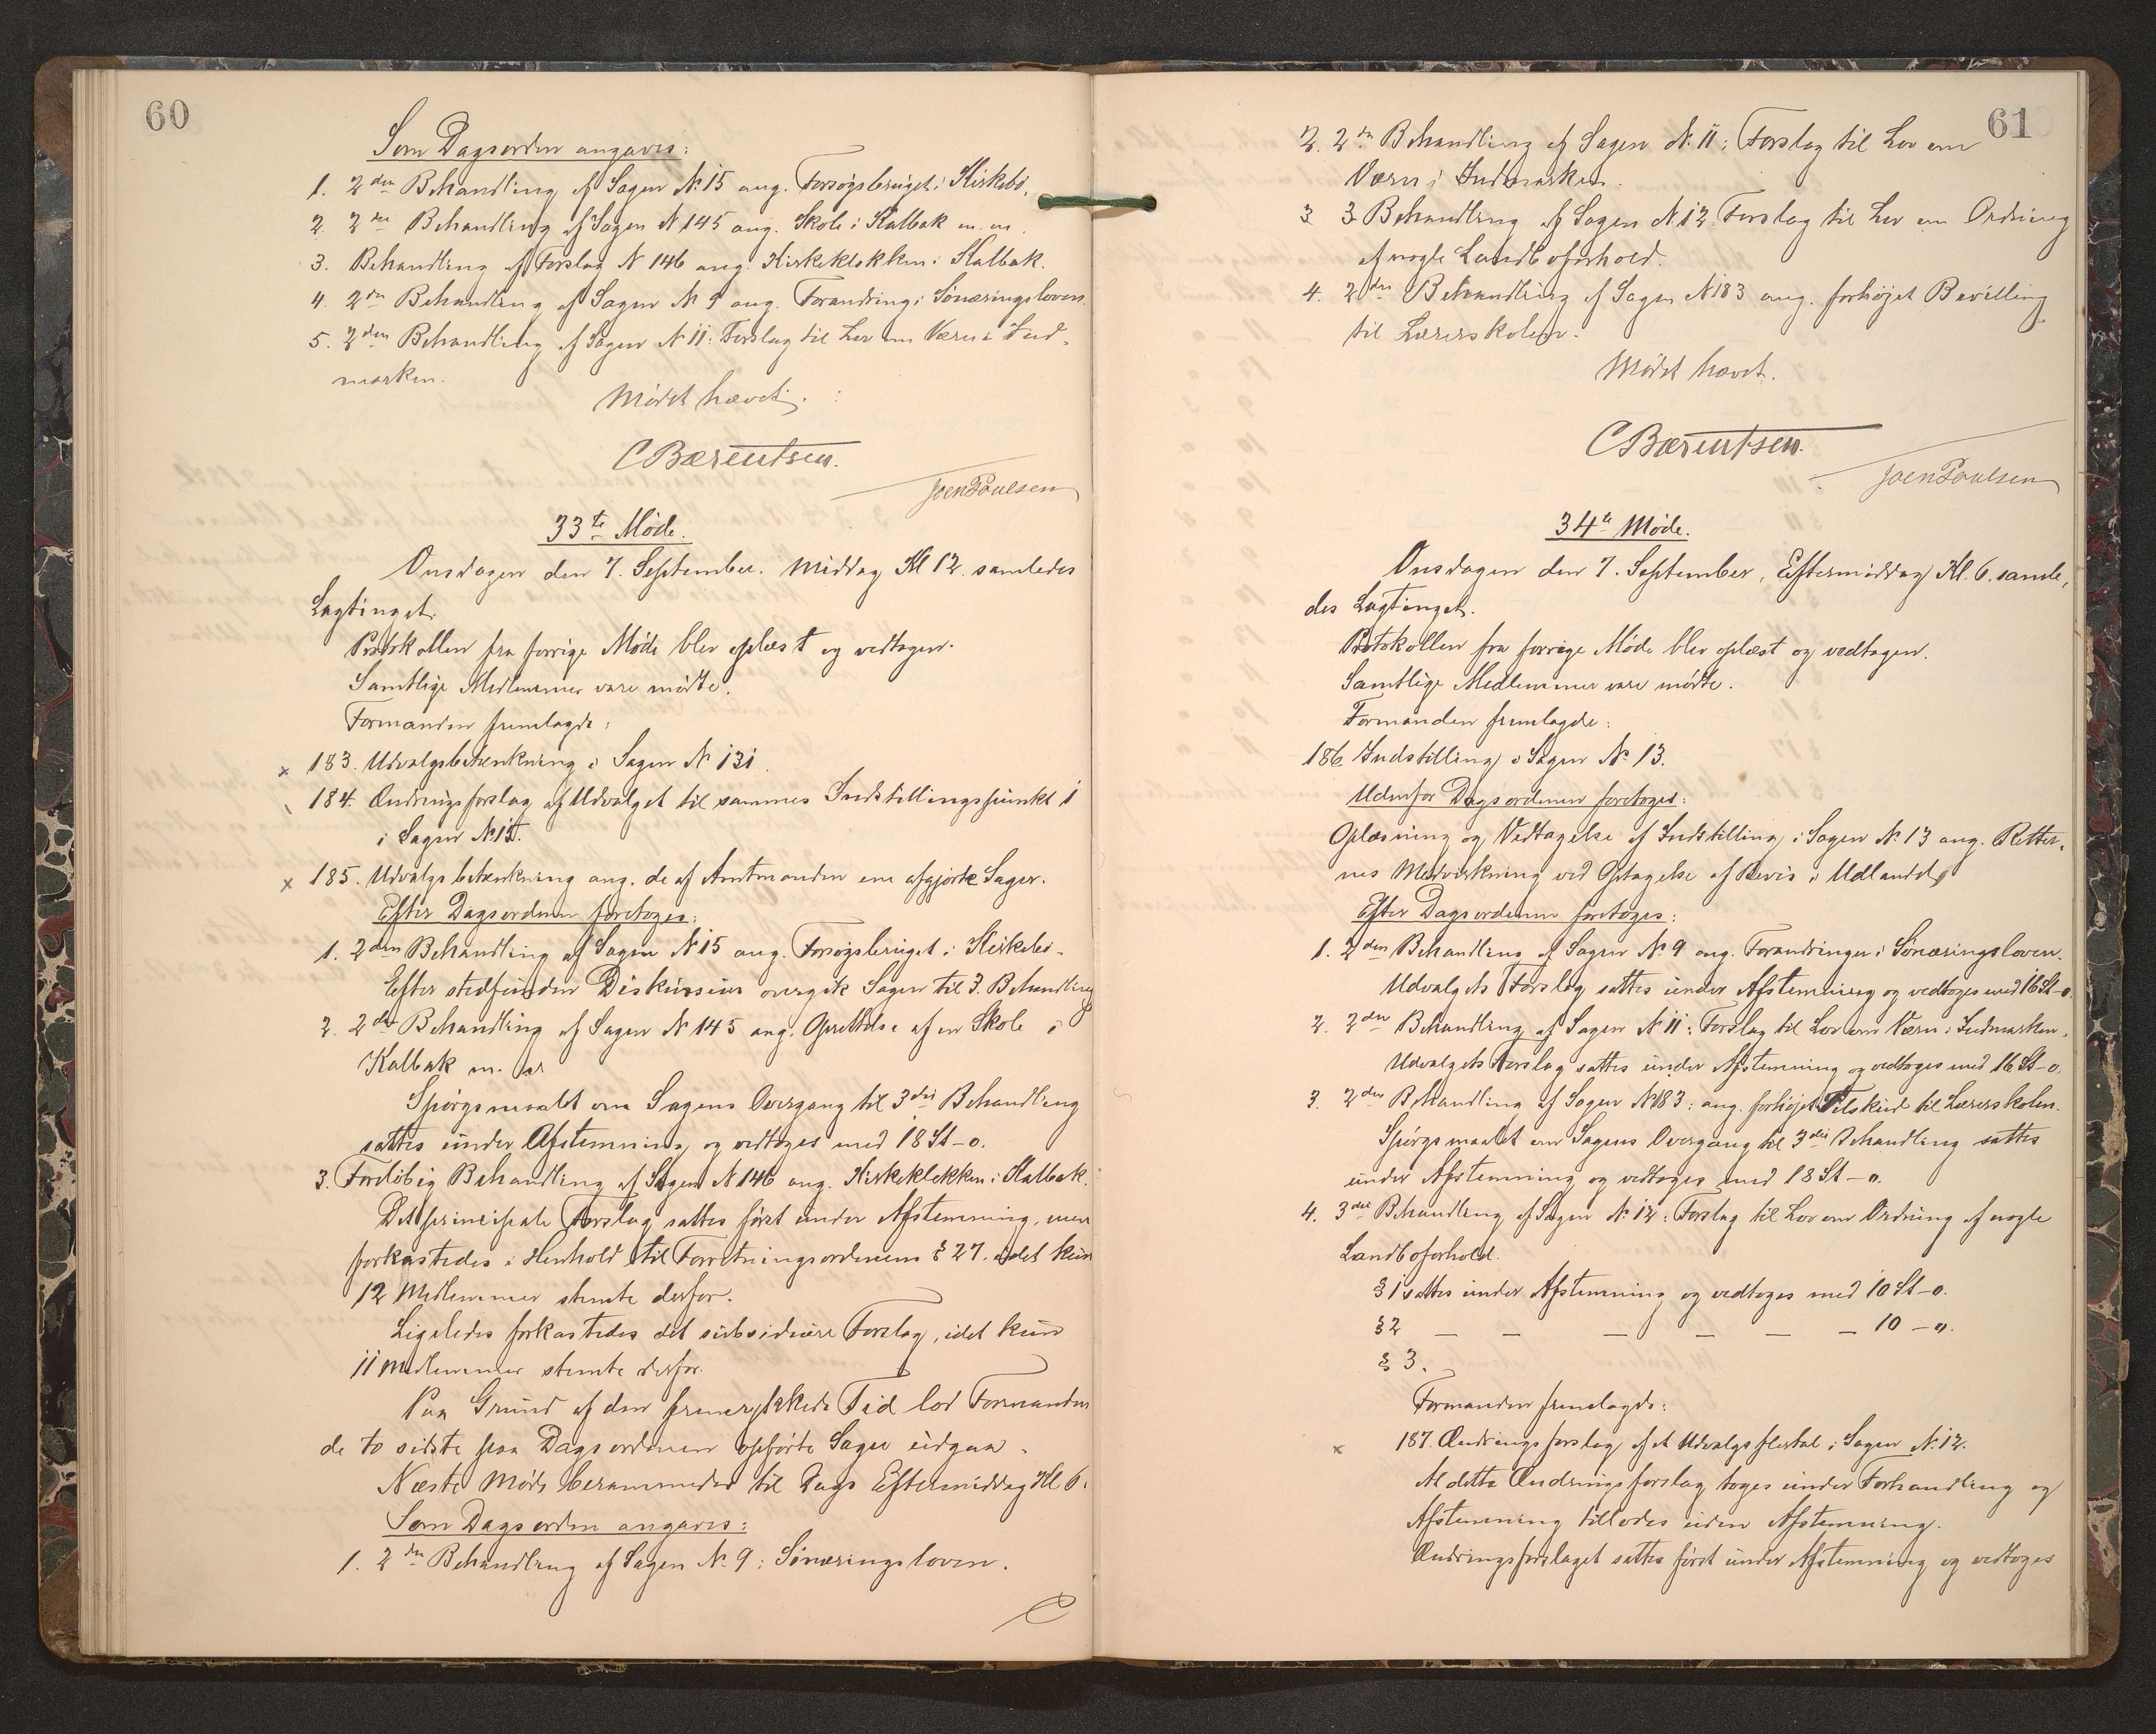 60
Som Dagsorden angaves:
1. 2den Behandling af Sagen № 15 ang. Forsøgsbruget i Kirkebø.
2. 2de Behandling af Sagen № 145 ang. Skole i Kalbak m. m.
3. Behandling af Forslag № 146 ang. Kirkeklokken i Kalbak.
4. 2den Behandling af Sagen № 9 ang. Forandring i Sønæringsloven.
5. 2den Behandling af Sagen № 11: Forslag til Lov om Værn i Ind-
marken.
Mødet hævet.
C Bærentsen.
Joen Poulsen
33te Møde.
Onsdagen den 7. September. Middag Kl 12. samledes
Lagtinget.
Protokollen fra forrige Møde blev oplæst og vedtagen.
Samtlige Medlemmer vare mødte.
Formanden fremlagde:
x 183. Udvalgsbetænkning i Sagen № 131.
184. Ændringsforslag af Udvalget til sammes Indstillingspunkt 1
i Sagen № 15.
x 185. Udvalgsbetænkning ang. de af Amtmanden ene afgjorte Sager.
Efter Dagsordenen foretoges:
1. 2den Behandling af Sagen № 15 ang. Forsøgsbruget i Kirkebø.
Efter stedfunden Diskussion overgik Sagen til 3. Behandling
2. 2den Behandling af Sagen № 145 ang. Oprettelse af en Skole i
Kalbak m. m.
Spørgsmaalet om Sagens Overgang til 3die Behandling
sattes under Afstemning og vedtoges med 18 St-0.
3. Foreløbig Behandling af Sagen № 146 ang. Kirkeklokken i Kalbak.
Det principale Forslag sattes først under Afstemning, men
forkastedes i Henhold til Forretningsordenens § 27. idet kun
12 Medlemmer stemte derfor.
Ligeledes forkastedes det subsidiære Forslag, idet kun
11 Medlemmer stemte derfor.
Paa Grund af den fremrykkede Tid lod Formanden
de to sidste paa Dagsordenen opførte Sager udgaa.
Næste Møde berammedes til Dags Eftermiddag Kl 6.
Som Dagsorden angaves:
1. 2den Behandling af Sagen № 9: Sønæringsloven.
61
2. 2den Behandling af Sagen № 11: Forslag til Lov om
Værn i Indmarken.
3. 3 Behandling af Sagen № 12. Forslag til Lov om Ordning
af nogle Landboforhold.
4. 2den Behandling af Sagen № 183 ang. forhøjet Bevilling
til Lærerskolen.
Mødet hævet.
C Bærentsen.
Joen Poulsen
34te Møde.
Onsdagen den 7. September, Eftermiddag Kl. 6. samle-
des Lagtinget.
Protokollen fra forrige Møde blev oplæst og vedtagen.
Samtlige Medlemmer vare mødte.
Formanden fremlagde:
186 Indstilling i Sagen № 13.
Udenfor Dagsordenen foretoges:
Oplæsning og Vedtagelse af Indstilling i Sagen № 13 ang. Retter-
nes Medvirkning ved Optagelse af Bevis i Udlandet.
Efter Dagsordenen foretoges:
1. 2den Behandling af Sagen № 9 ang. Forandringer i Sønæringsloven.
Udvalgets Forslag sattes under Afstemning og vedtoges med 16 St-0.
2. 2den Behandling af Sagen № 11: Forslag til Lov om Værn i Indmarken.
Udvalgets Forslag sattes under Afstemning og vedtoges med 16 St-0.
3. 2den Behandling af Sagen № 183: ang. forhøjet Tilskud til Lærerskolen.
Spørgsmaalet om Sagens Overgang til 3die Behandling sattes
under Afstemning og vedtoges med 18 St-0.
4. 3die Behandling af Sagen № 12: Forslag til Lov om Ordning af nogle
Landboforhold.
§ 1 sattes under Afstemning og vedtoges med 10 St-0.
§ 2 — — — — — — 10 -0.
§ 3.
Formanden fremlagde:
x 187. Ændringsforslag af et Udvalgsflertal i Sagen № 12.
At dette Ændringsforslag toges under Forhandling og
Afstemning tillodes uden Afstemning.
Ændringsforslaget sattes først under Afstemning og vedtoges